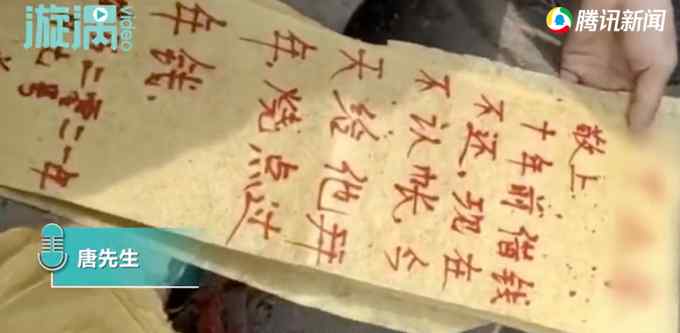 漩涡
video
腾讯新闻
敬上
十年前借钱
不还，现在
不认帐今
天给他拜
年，烧点过
年錢．
二零二一年
七号
唐先生